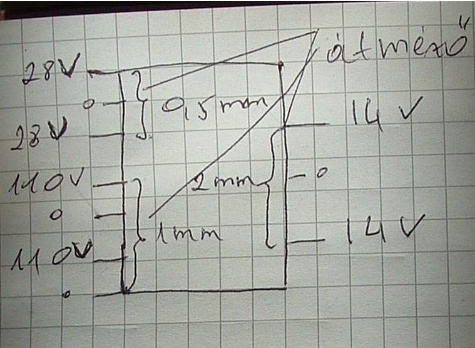 28V
átmérő
0
0,5 mm
28V
14V
110V
2mm
0
0
110V
1mm
14V
0